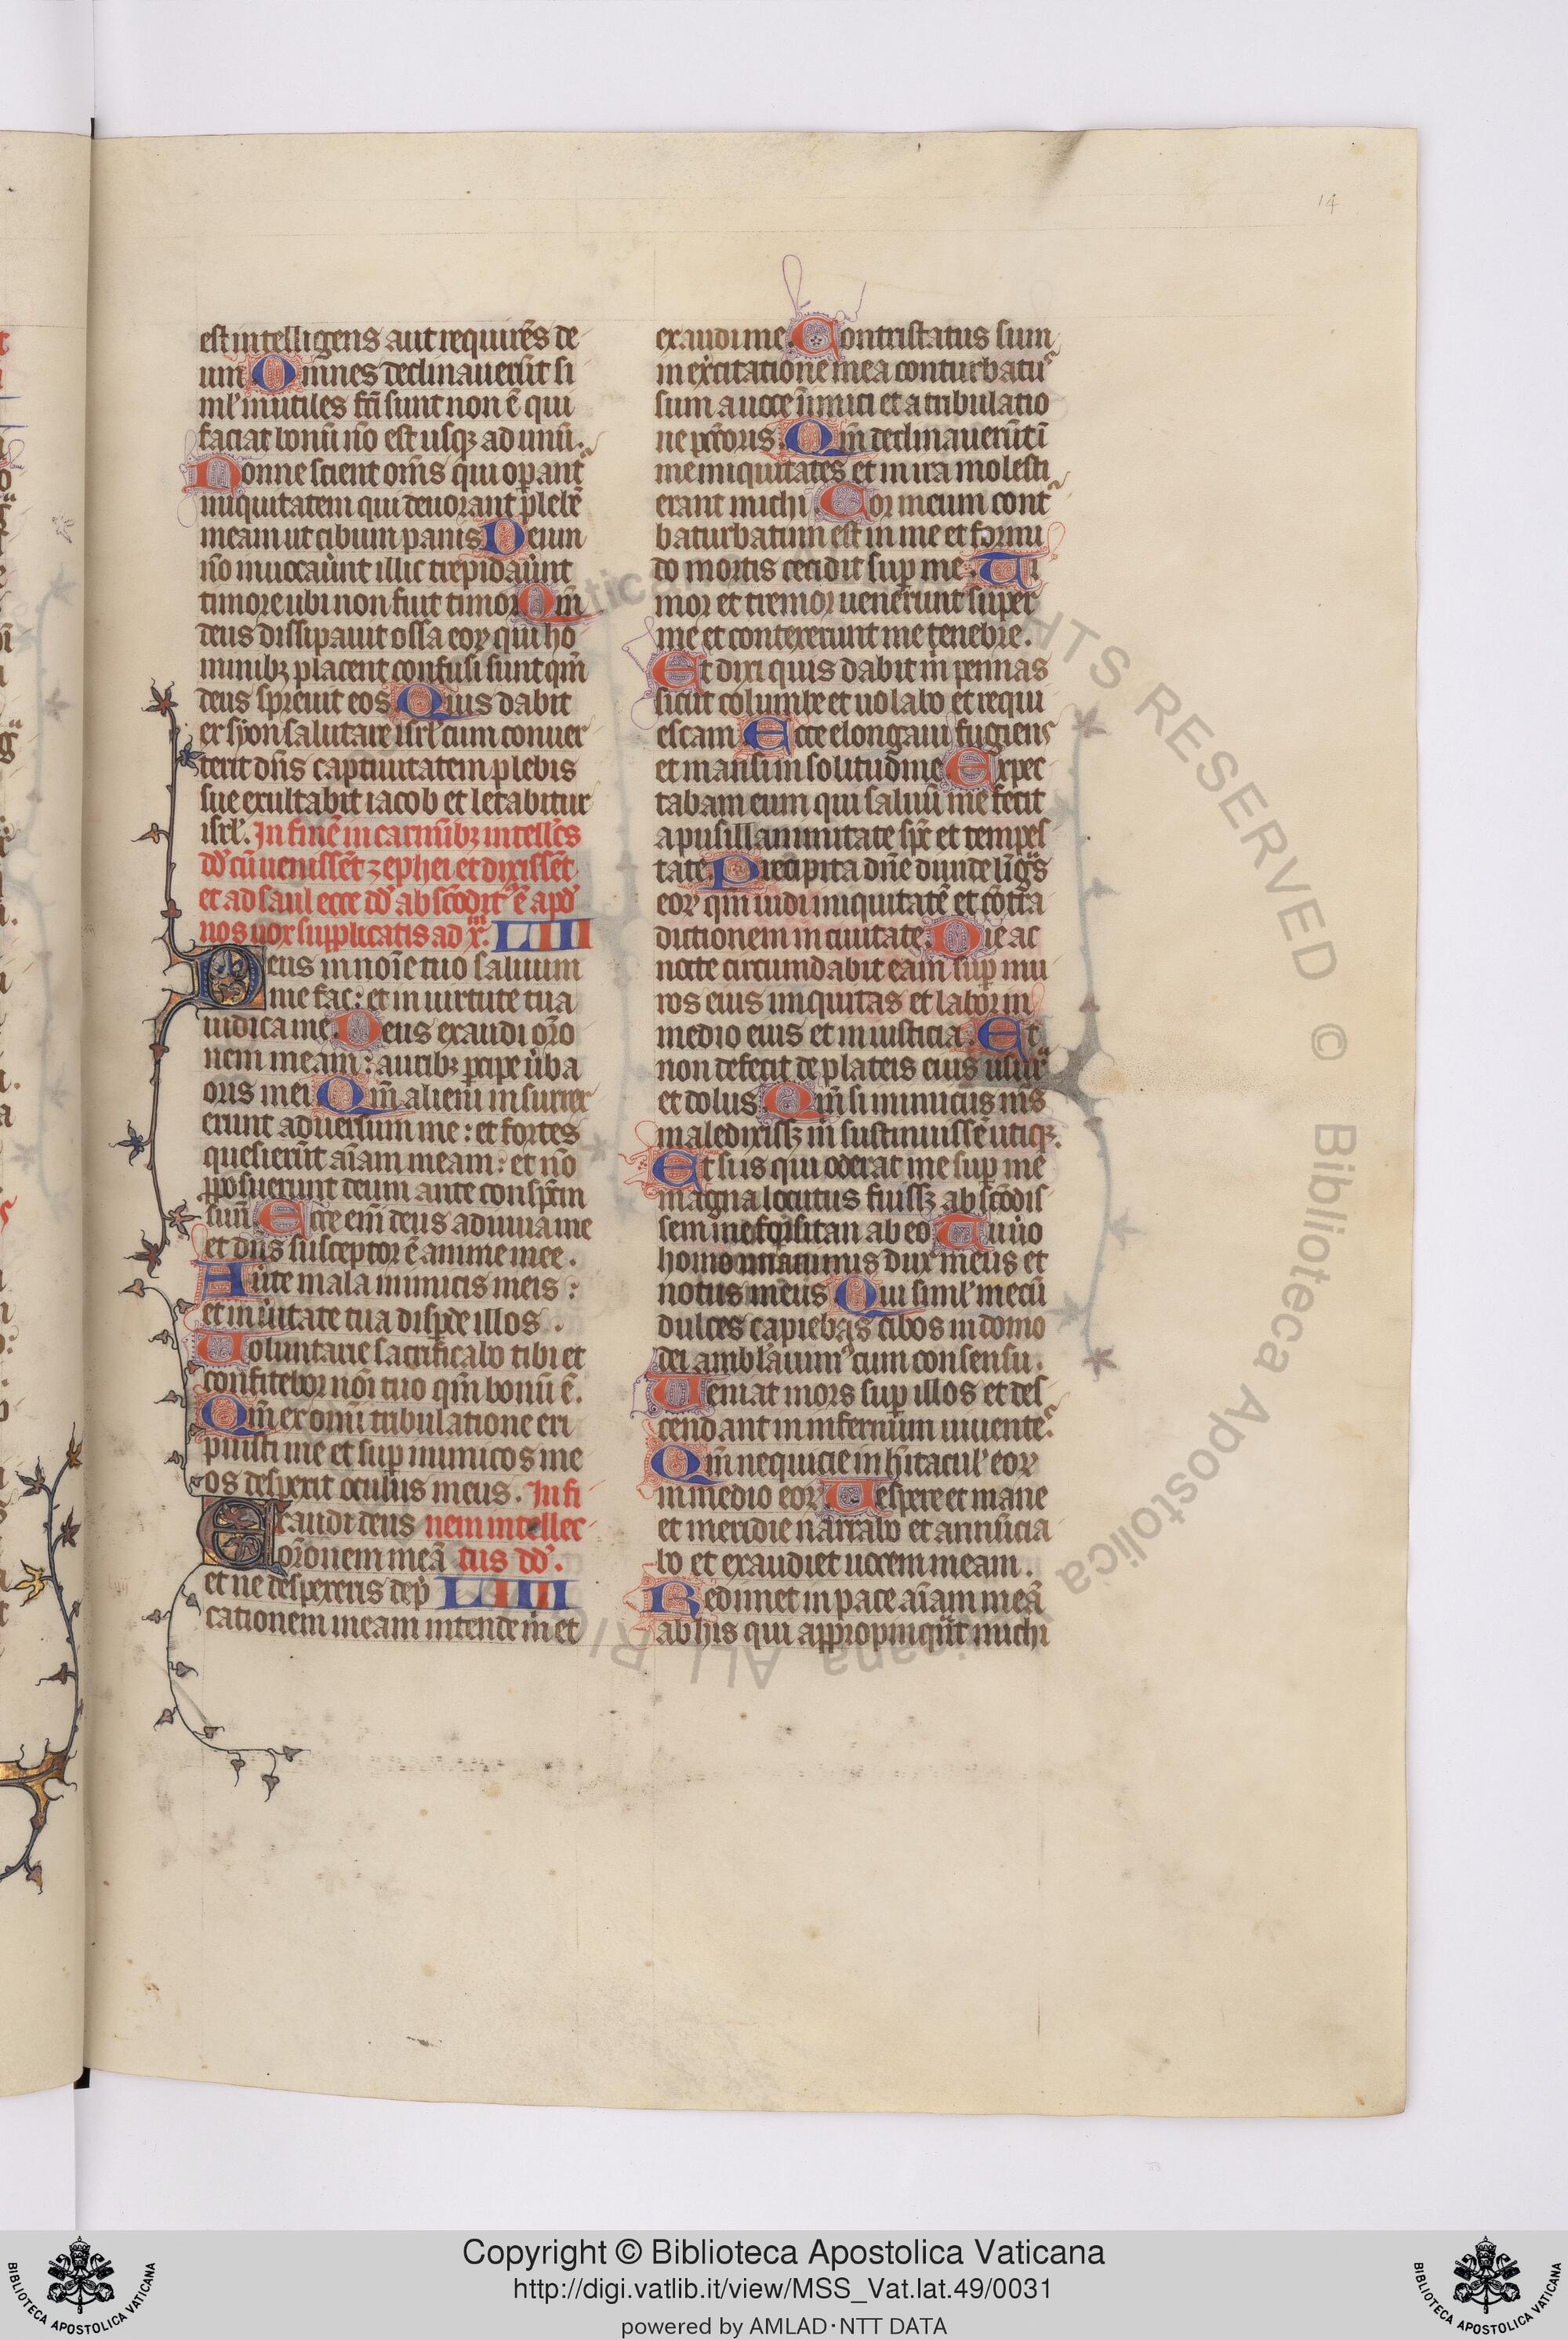 14
est intelligens aut requirẽs de
um Omnes declinauerũt si
ml' inutiles fcti sunt non ẽ qui
faciat bonũ nõ est usqꝫ ad unũ.
Nonne scient om̃s qui op̲ant
iniquitatem qui deuorant plebẽ
meam ut cibum panis Deum
nõ inuocauer̃t illic trepidauer̃t
timore ubi non fuit timor Qm̃
deus dissipauit ossa eoꝝ qui ho
minibꝫ placent confusi sunt qm̃
deus spreuit eos Quis dabit
ex syon salutare isrl' cum conuer
terit dñs captiuitatem plebis
sue exultabit iacob et letabitur
isrl'. In finẽ in carminibꝫ intell'cs
dd' cũ uenissẽt zephei et dixissẽt
et ad saul ecce dd' abscõdit' ẽ apd'
nos uox supplicatis ad xᵐ. LIII
Deus in noĩe tuo saluum
me fac: et in uirtute tua
iudica me. Deus exaudi orõ
nem meam: auribꝫ p̲cipe u̾ba
oris mei Qm̃ alieni insurrex
erunt aduersum me: et fortes
quesierũt aĩam meam: et nõ
ꝓposuerunt deum ante conspc̃m
suũ Ecce em̃ deus adiuua me
et dñs susceptor ẽ anime mee.
Au̾te mala inimicis meis:
et in u̾itate tua disp̲de illos.
Uoluntarie sacrificabo tibi et
confitebor nõi tuo qm̃ bonũ ẽ.
Qm̃ ex omĩ tribulatione eri
puisti me et sup̲ inimicos me
os despexit oculus meus. In fi
Exaudi deus nem intellec
orõonem meã tus dd'.
et ne despexeris dep̲ LIIII
cationem meam intende m̃ et
exaudi me. Contristatus sum
in exercitatione mea conturbatus
sum a uoce inimici et a tribulatio
ne pctõris. Qm̃ declinauerũt ĩ
me iniquitates et in ira molesti
erant michi Cor meum cont
baturbatum est in me et formi
do mortis cecidit sup̲ me. Ti
mor et tremor uenerunt super
me et contexerunt me tenebre.
Et dixi quis dabit m̃ pennas
sicut columbe et uolabo et requi
escam Ecce elongaui fugiens
et mansi in solitudine Expec
tabam eum qui saluũ me fecit
a pusillanimitate sp̃c et tempes
tate. Precipita dñe diuide lĩgas
eoꝝ qm̃ uidi iniquitatẽ et cõtᵃ
dictionem in ciuitate. Die ac
nocte circumdabit eam sup̲ mu
ros eius iniquitas et labor in
medio eius et iniusticia. Et
non defecit de plateis eius usurᵃ
et dolus Qm̃ si inimicus m̃s
maledixissꝫ m̃ sustinuissẽ utiqꝫ.
Et si is qui oderat me sup̲ me
magna locutus fuissꝫ abscõdis
sem me forsitan ab eo Tu u̾o
homo unanimis dux meus et
notus meus Qui siml' mecũ
dulces capiebas cibos in domo
dei ambl'auimꝰ cum consensu.
Ueniat mors sup̲ illos et des
cendant in infernum uiuentes
Qm̃ nequicie in h̃itacul' eoꝝ
in medio eoꝝ. Uespere et mane
et meridie narrabo et annũcia
bo et exaudiet uocem meam.
Redimet in pace aĩam meã
ab his qui appropinqũt michi
Copyright © Biblioteca Apostolica Vaticana
http://digi.vatlib.it/view/MSS_Vat.lat.49/0031
powered by AMLAD·NTT DATA